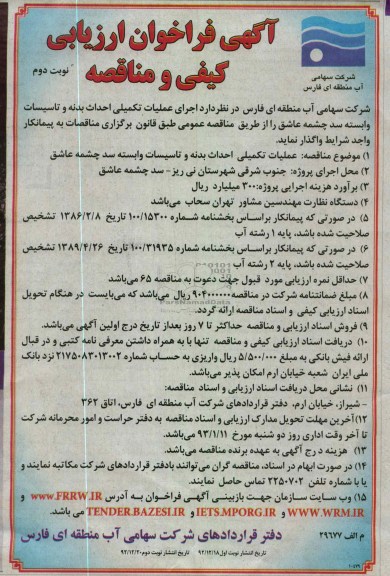 آگهی فراخوان ارزیابی
کیفی و مناقصه
نوبت دوم
شرکت سهامی
آب منطقه ای فارس
شرکت سهامی آب منطقه ای فارس در نظردارد اجرای عملیات تکمیلی احداث بدنه و تاسیسات
وابسته سد چشمه عاشق را از طریق مناقصه عمومی طبق قانون برگزاری مناقصات به پیمانکار
واجد شرایط واگذار نماید.
۱) موضوع مناقصه: عملیات تکمیلی احداث بدنه و تاسیسات وابسته سد چشمه عاشق
۲) محل اجرای پروژه: جنوب شرقی شهرستان نی ریز- سد چشمه عاشق
۳) برآورد هزینه اجرایی پروژه: ۳۰۰ میلیارد ریال
۴) دستگاه نظارت مهندسین مشاور تهران سحاب می‌باشد
۵) در صورتی که پیمانکار براساس بخشنامه شماره ۱۰۰/۱۵۳۰۰ تاریخ ۱۳۸۶/۲/۸ تشخیص
صلاحیت شده باشد، پایه ۱ رشته آب
۶) در صورتی که پیمانکار براساس بخشنامه شماره ۱۰۰/۳۱۹۳۵ تاریخ ۱۳۸۹/۴/۲۶ تشخیص
صلاحیت شده باشد، پایه ۲ رشته آب
۷) حداقل نمره ارزیابی مورد قبول جهت دعوت به مناقصه ۶۵ می‌باشد
۸) مبلغ ضمانتنامه شرکت در مناقصه ۹۰۴۰۰۰۰۰۰۰ ریال می‌باشد که می‌بایست در هنگام تحویل
اسناد ارزیابی کیفی و اسناد مناقصه ارائه گردد.
۹) فروش اسناد ارزیابی و مناقصه حداکثر تا ۷ روز بعداز تاریخ درج اولین آگهی می‌باشد.
۱۰) دریافت اسناد ارزیابی کیفی و مناقصه تنها با به همراه داشتن معرفی نامه کتبی و در قبال
ارائه فیش بانکی به مبلغ ۵/۵۰۰/۰۰۰ ریال واریزی به حساب شماره ۲۱۷۵۰۸۳۰۱۳۰۰۲ نزد بانک
ملی ایران شعبه خیابان ارم امکان پذیر می‌باشد.
۱۱) نشانی محل دریافت اسناد ارزیابی و اسناد مناقصه:
- شیراز، خیابان ارم، دفتر قراردادهای شرکت آب منطقه ای فارس، اتاق ۳۶۲
۱۲) آخرین مهلت تحویل مدارک ارزیابی و اسناد مناقصه به دفتر حراست و امور محرمانه شرکت
تا آخر وقت اداری روز دو شنبه مورخ ۹۳/۱/۱۱ می‌باشد.
۱۳) هزینه درج آگهی به عهده برنده مناقصه می‌باشد.
۱۴) در صورت ابهام در اسناد، مناقصه گران می‌توانند بادفتر قراردادهای شرکت مکاتبه نمایند و
یا با شماره تلفن ۲۲۵۰۷۰۲ تماس حاصل نمایند.
۱۵) وب سایت سازمان جهت بازبینی آگهی فراخوان به آدرس www.FRRW.IR و
WWW.WRM.IR و IETS.MPORG.IR و TENDER.BAZESI.IR می باشد.
دفتر قراردادهای شرکت سهامی آب منطقه ای فارس
م الف ۲۹۶۷۷
تاریخ انتشار نوبت اول ۹۲/۱۲/۱۸ تاریخ انتشار نوبت دوم ۹۲/۱۲/۲۰